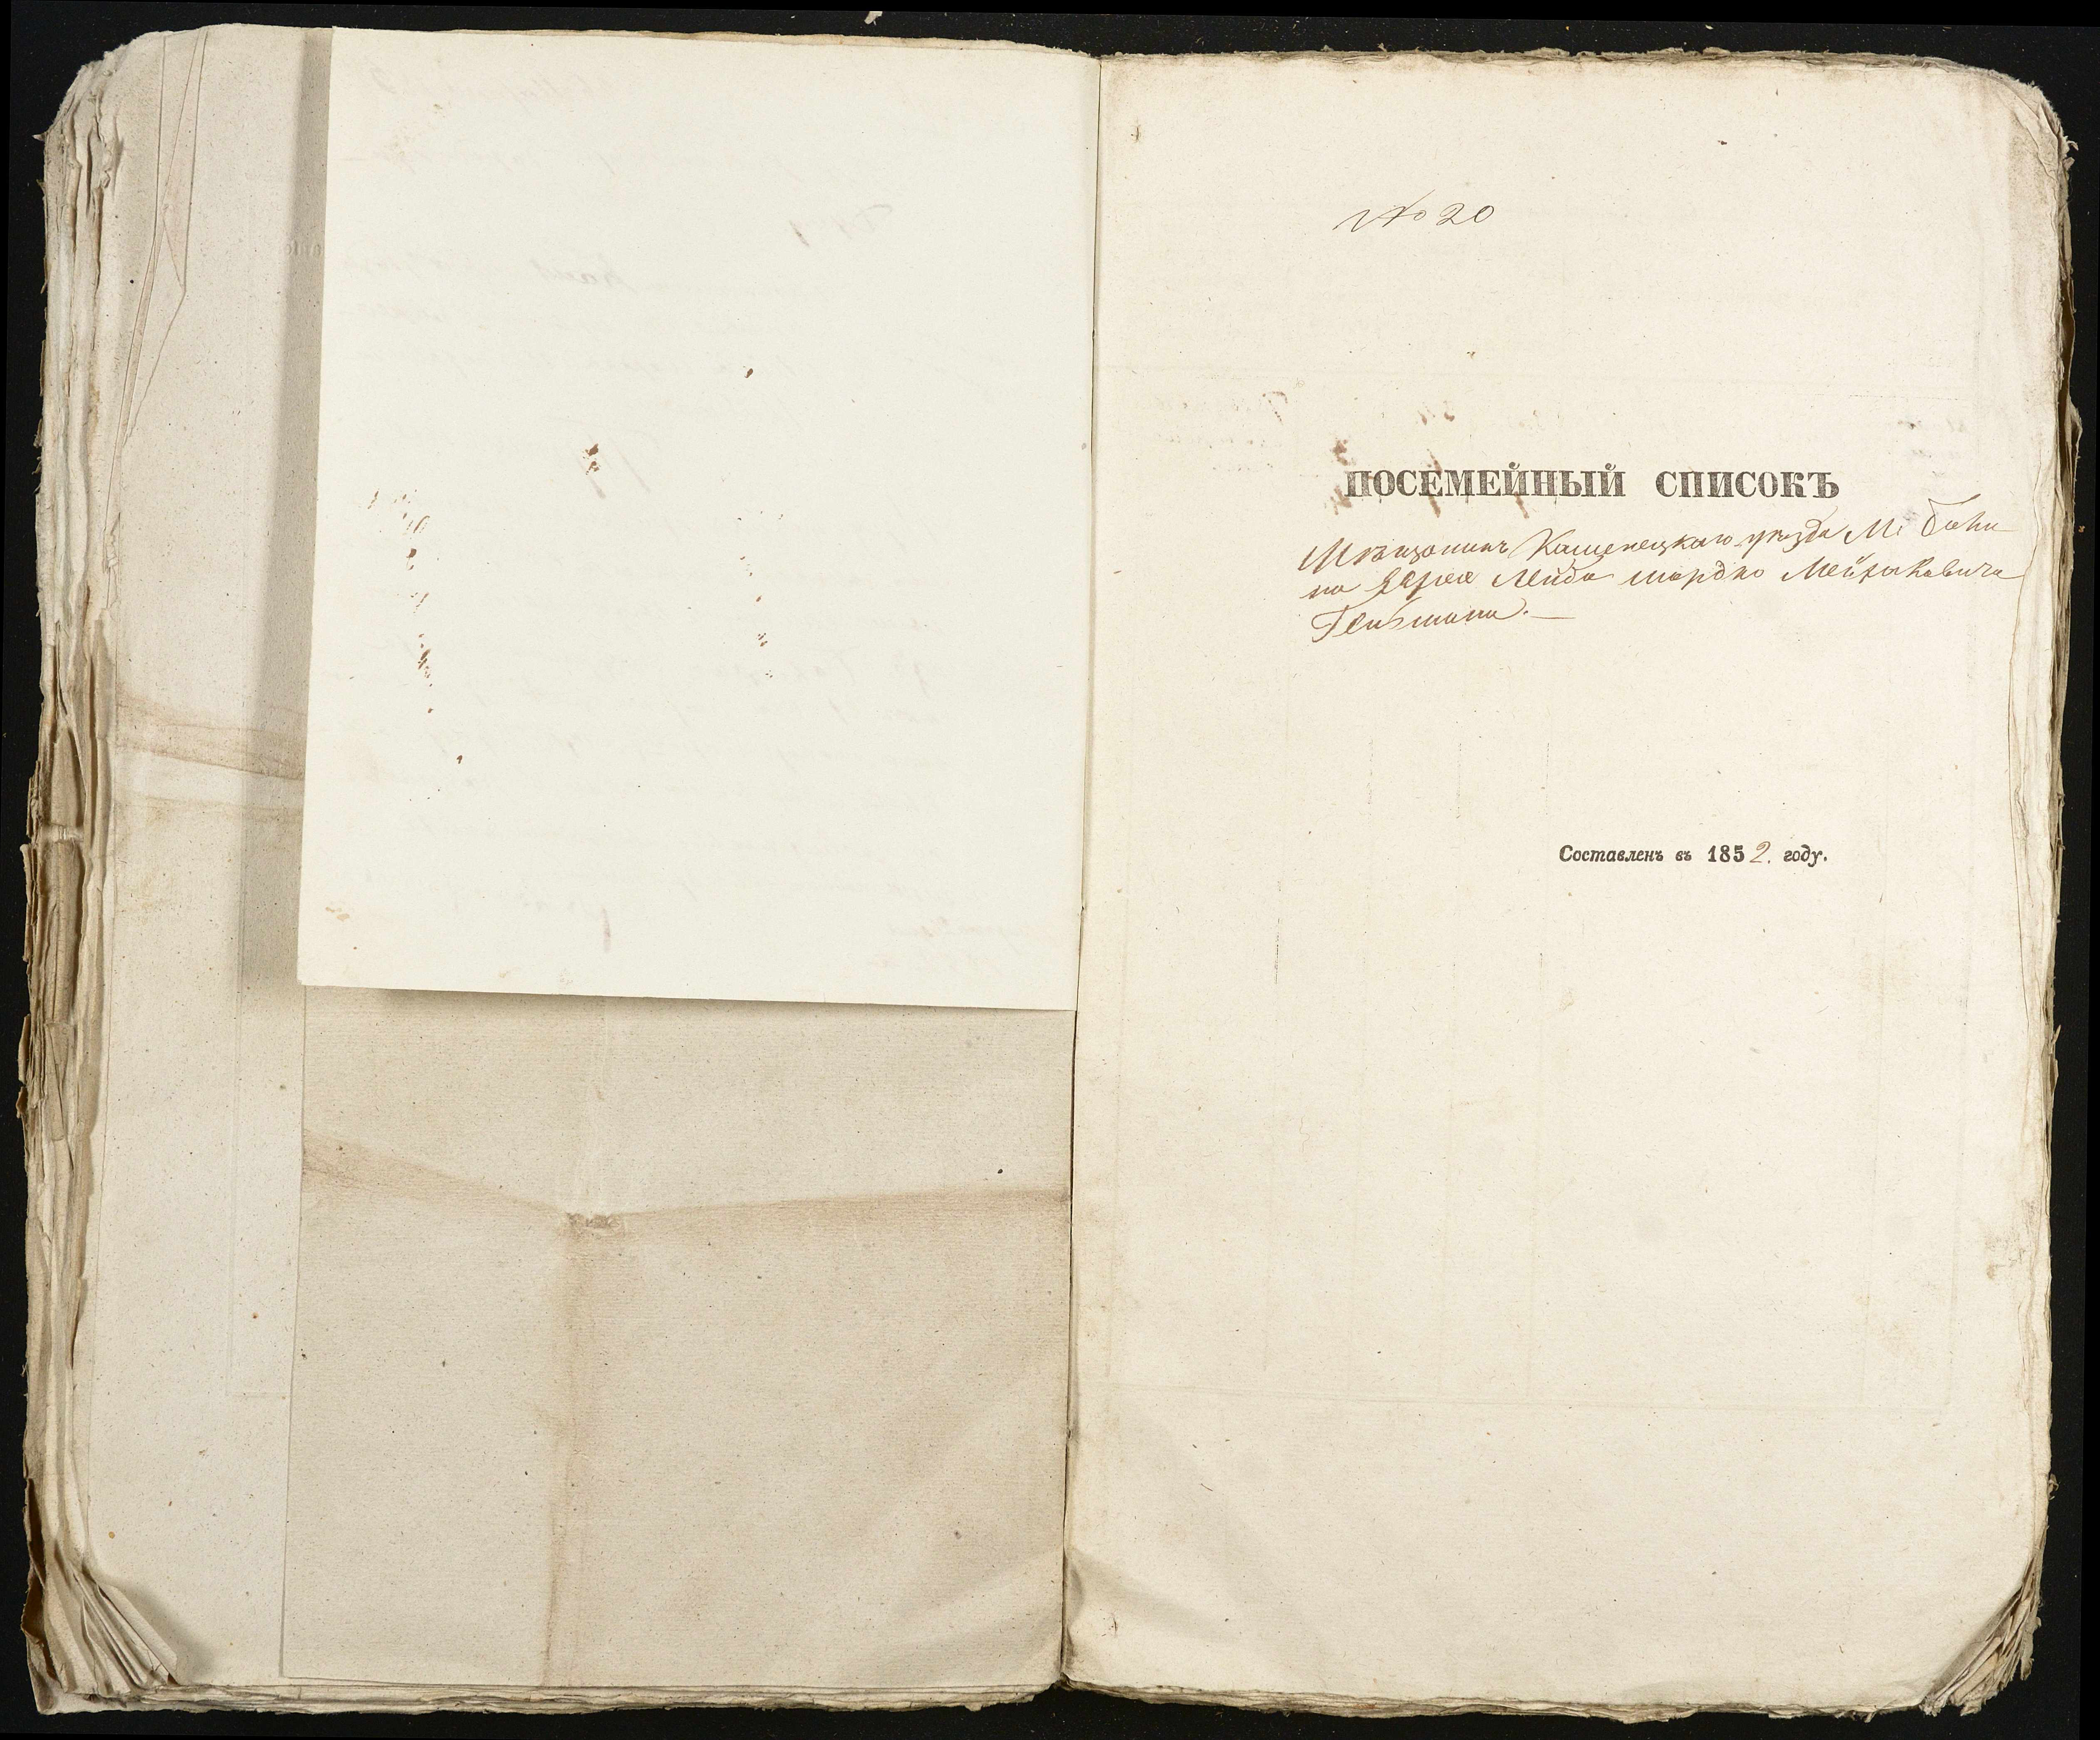 № 20
ПОСЕМЕЙНЫЙ СПИСОКЪ
Мѣщанинъ Каменецкаго уѣзда М:
на Еврея Лейба Мордко Мейзаковича
Составленъ въ 1852. году.